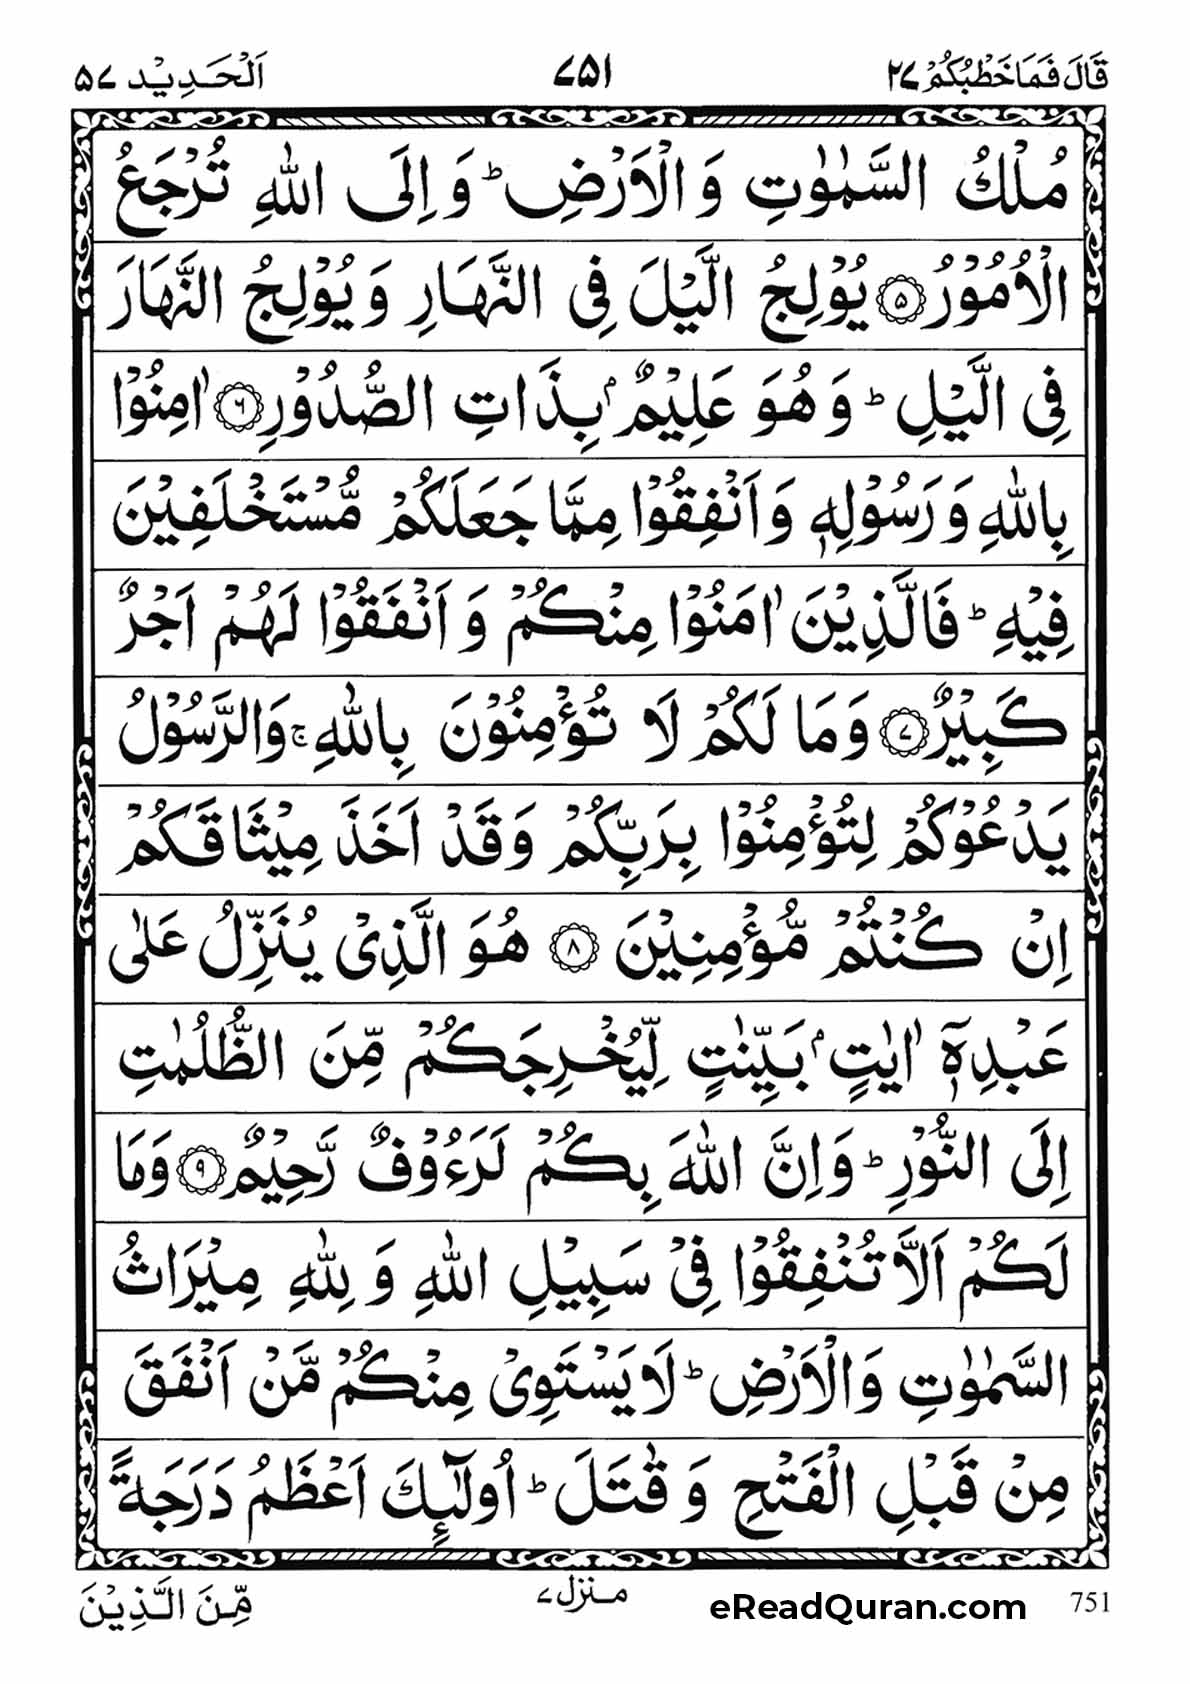 قَالَ فَمَا خَطْبُكُمْ ٢٧ ٧٥١ اَلْحَدِيْد ٥٧
مُلْكُ السَّمٰوٰتِ وَ الْاَرْضِ ؕ وَ اِلَى اللّٰهِ تُرْجَعُ
الْاُمُوْرُ ۝٥ يُوْلِجُ الَّيْلَ فِى النَّهَارِ وَ يُوْلِجُ النَّهَارَ
فِى الَّيْلِ ؕ وَ هُوَ عَلِيْمٌۢ بِذَاتِ الصُّدُوْرِ ۝٦ اٰمِنُوْا
بِاللّٰهِ وَ رَسُوْلِهٖ وَ اَنْفِقُوْا مِمَّا جَعَلَكُمْ مُّسْتَخْلَفِيْنَ
فِيْهِ ؕ فَالَّذِيْنَ اٰمَنُوْا مِنْكُمْ وَ اَنْفَقُوْا لَهُمْ اَجْرٌ
كَبِيْرٌ ۝٧ وَ مَا لَكُمْ لَا تُؤْمِنُوْنَ بِاللّٰهِ ۚ وَالرَّسُوْلُ
يَدْعُوْكُمْ لِتُؤْمِنُوْا بِرَبِّكُمْ وَ قَدْ اَخَذَ مِيْثَاقَكُمْ
اِنْ كُنْتُمْ مُّؤْمِنِيْنَ ۝٨ هُوَ الَّذِىْ يُنَزِّلُ عَلٰى
عَبْدِهٖٓ اٰيٰتٍۢ بَيِّنٰتٍ لِّيُخْرِجَكُمْ مِّنَ الظُّلُمٰتِ
اِلَى النُّوْرِ ؕ وَ اِنَّ اللّٰهَ بِكُمْ لَرَءُوْفٌ رَّحِيْمٌ ۝٩ وَ مَا
لَكُمْ اَلَّا تُنْفِقُوْا فِىْ سَبِيْلِ اللّٰهِ وَ لِلّٰهِ مِيْرَاثُ
السَّمٰوٰتِ وَ الْاَرْضِ ؕ لَا يَسْتَوِىْ مِنْكُمْ مَّنْ اَنْفَقَ
مِنْ قَبْلِ الْفَتْحِ وَ قٰتَلَ ؕ اُولٰٓئِكَ اَعْظَمُ دَرَجَةً
مِّنَ الَّذِيْنَ منزل ٧ eReadQuran.com 751